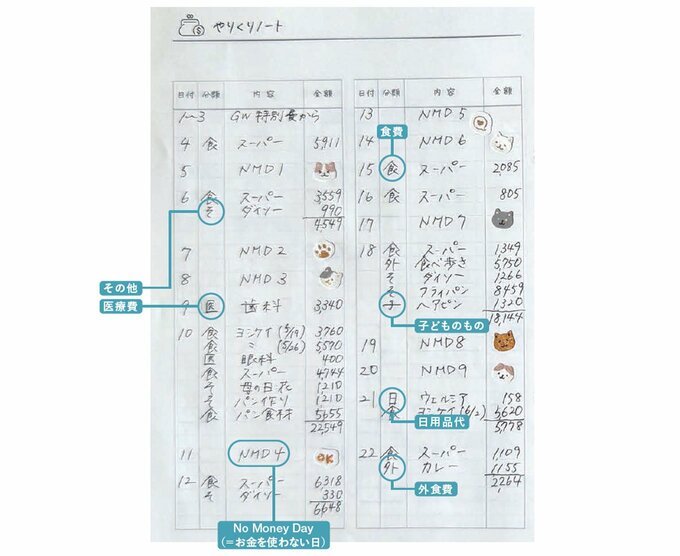 やりくりノート
日付 分類 内容 金額
1〜3 GW特別費から
4 食 スーパー 5,911
5 NMD1
6 食 スーパー 3,559
そ ダイソー 990
4,549
7 NMD2
8 NMD3
その他
医療費
9 医 歯科 3,340
10 食 ヨシケイ(5/19) 3,760
食 〃 (5/26) 5,570
医 眼科 400
食 スーパー 4,744
そ 母の日・花 1,210
そ パン作り 1,210
食 パン食材 5,655
22,549
11 NMD4 OK
12 食 スーパー 6,318
そ ダイソー 330
6,648
No Money Day
(=お金を使わない日)
日付 分類 内容 金額
13 NMD5
14 NMD6
食費
15 食 スーパー 2,085
16 食 スーパー 805
17 NMD7
18 食 スーパー 1,349
外 食べ歩き 5,750
そ ダイソー 1,266
そ フライパン 8,459
子 ヘアピン 1,320
18,144
子どものもの
19 NMD8
20 NMD9
21 日 ウェルシア 158
食 ヨシケイ(6/2) 5,620
5,778
日用品代
22 食 スーパー 1,109
外 カレー 1,155
2,264
外食費